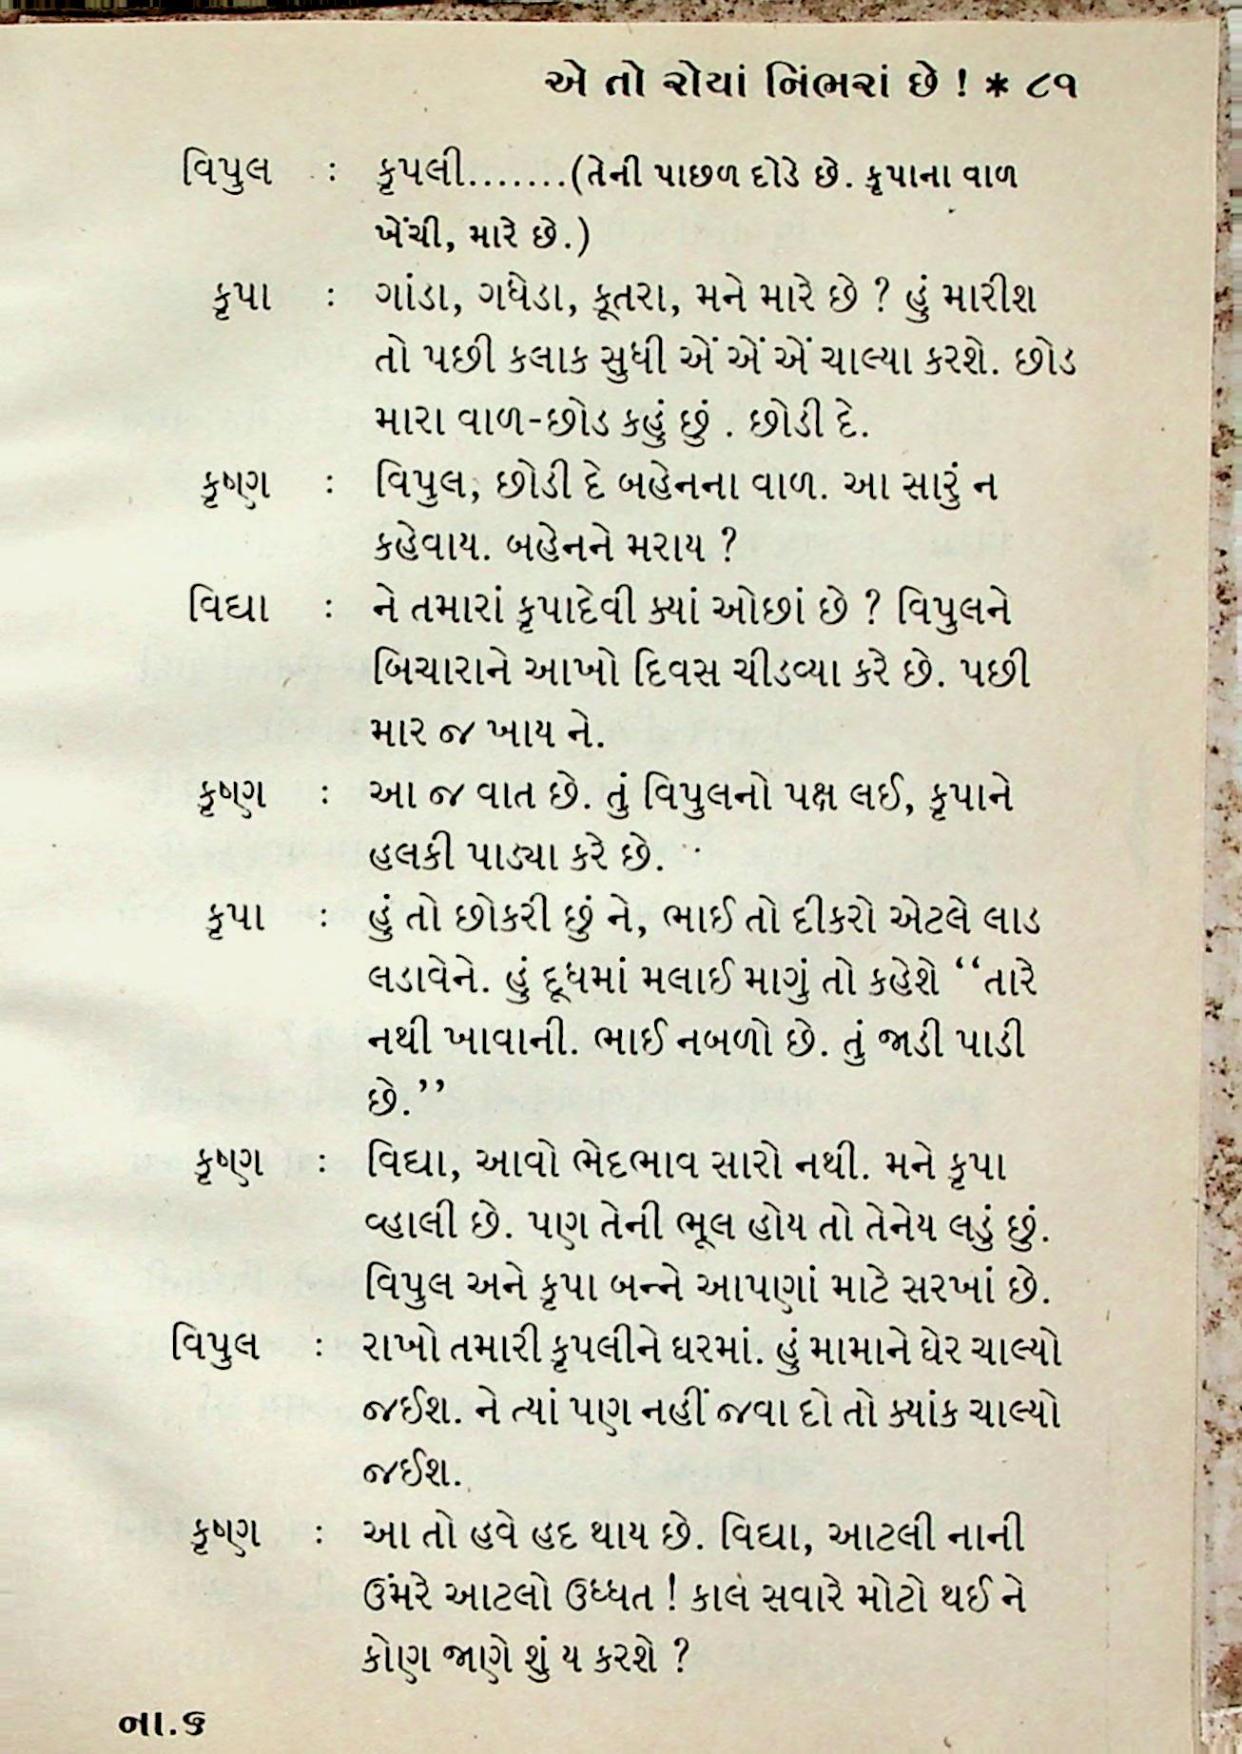 એ તો રોયાં નિંભરાં છે ! * ૮૧
વિપુલ : કૃપલી.......(તેની પાછળ દોડે છે. કૃપાના વાળ
ખેંચી, મારે છે.)
કૃપા : ગાંડા, ગધેડા, કૂતરા, મને મારે છે ? હું મારીશ
તો પછી કલાક સુધી એં એં એં ચાલ્યા કરશે. છોડ
મારા વાળ-છોડ કહું છું . છોડી દે.
કૃષ્ણ : વિપુલ, છોડી દે બહેનના વાળ. આ સારું ન
કહેવાય. બહેનને મરાય ?
વિદ્યા : ને તમારાં કૃપાદેવી ક્યાં ઓછાં છે ? વિપુલને
બિચારાને આખો દિવસ ચીડવ્યા કરે છે. પછી
માર જ ખાય ને.
કૃષ્ણ : આ જ વાત છે. તું વિપુલનો પક્ષ લઈ, કૃપાને
હલકી પાડ્યા કરે છે.
કૃપા : હું તો છોકરી છું ને, ભાઈ તો દીકરો એટલે લાડ
લડાવેને. હું દૂધમાં મલાઈ માગું તો કહેશે ‘‘તારે
નથી ખાવાની. ભાઈ નબળો છે. તું જાડી પાડી
છે.’’
કૃષ્ણ : વિદ્યા, આવો ભેદભાવ સારો નથી. મને કૃપા
વ્હાલી છે. પણ તેની ભૂલ હોય તો તેનેય લડું છું.
વિપુલ અને કૃપા બન્ને આપણાં માટે સરખાં છે.
વિપુલ : રાખો તમારી કૃપલીને ઘરમાં. હું મામાને ઘેર ચાલ્યો
જઈશ. ને ત્યાં પણ નહીં જવા દો તો ક્યાંક ચાલ્યો
જઈશ.
કૃષ્ણ : આ તો હવે હદ થાય છે. વિદ્યા, આટલી નાની
ઉંમરે આટલો ઉધ્ધત ! કાલ સવારે મોટો થઈ ને
કોણ જાણે શું ય કરશે ?
ના.૬